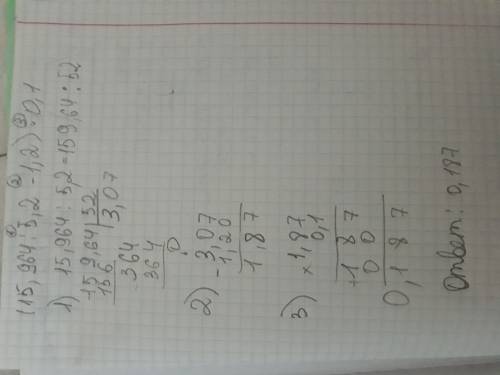 (15,964 : 5,2 - 1,2) · 0,1
1) 15,964 : 5,2 = 159,64 : 52
159,64 | 52
156 | 3,07
364
364
0
2) - 3,07
1,20
1,87
3) × 1,87
0,1
+ 1 8 7
0 0
0,1 8 7
Ответ: 0,187